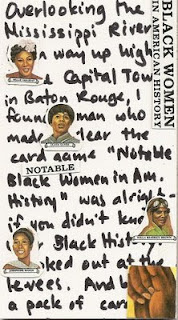 Overlooking the
Mississippi River
way up high
Capital Tow
in Baton Rouge, I
man who
lear the
card game "Notable
NOTABLE
Black Women in Am.
History" was alrigh
if you didn't kno
Black Hist
oked out at the
levees. And
a pack of car
BLACK WOMEN
IN AMERICAN HISTORY